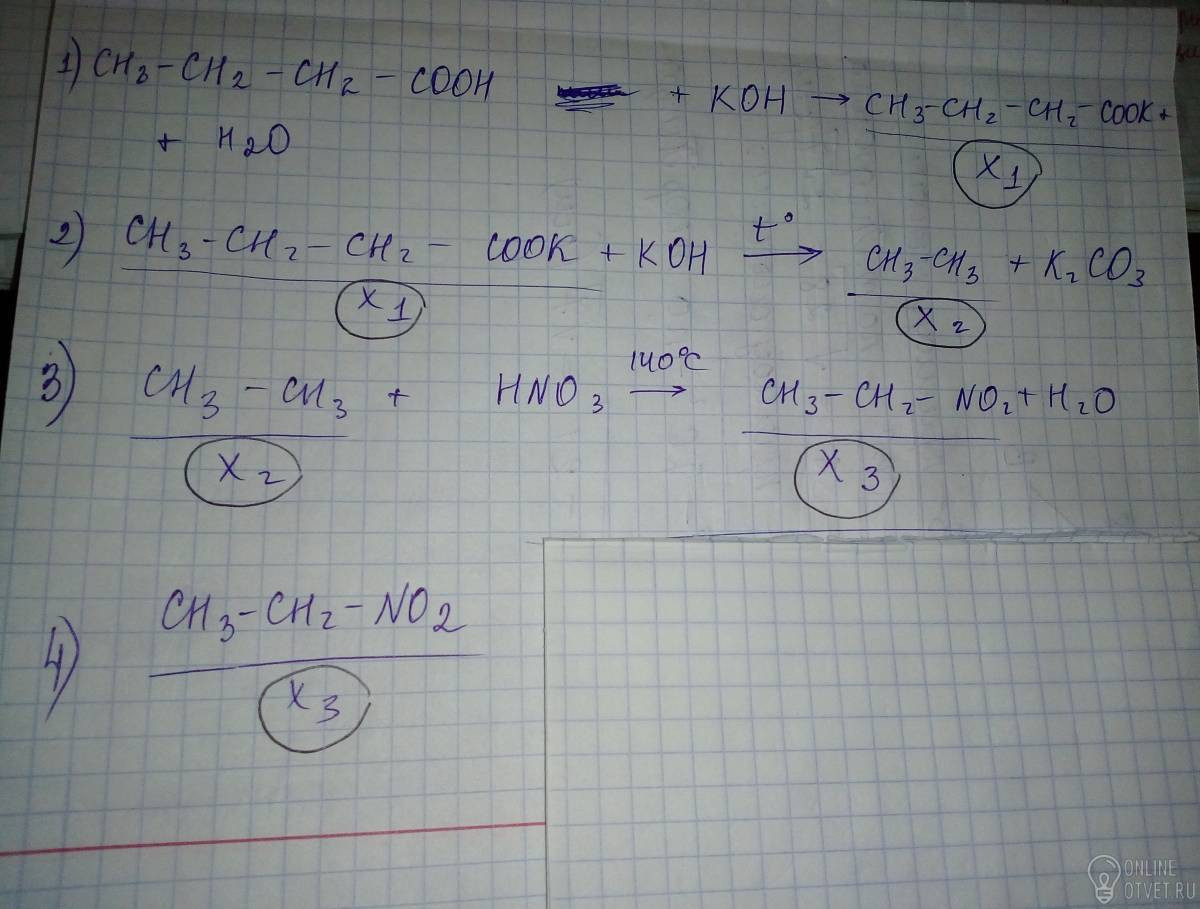 1) CH3-CH2-CH2-COOH + KOH → CH3-CH2-CH2-COOK+
+ H2O
X1
2) CH3-CH2-CH2-COOK + KOH t° → CH3-CH3 + K2CO3
X1 X2
140°C
3) CH3-CH3 + HNO3 → CH3-CH2-NO2+H2O
X2 X3
4) CH3-CH2-NO2
X3
ONLINE
OTVET.RU